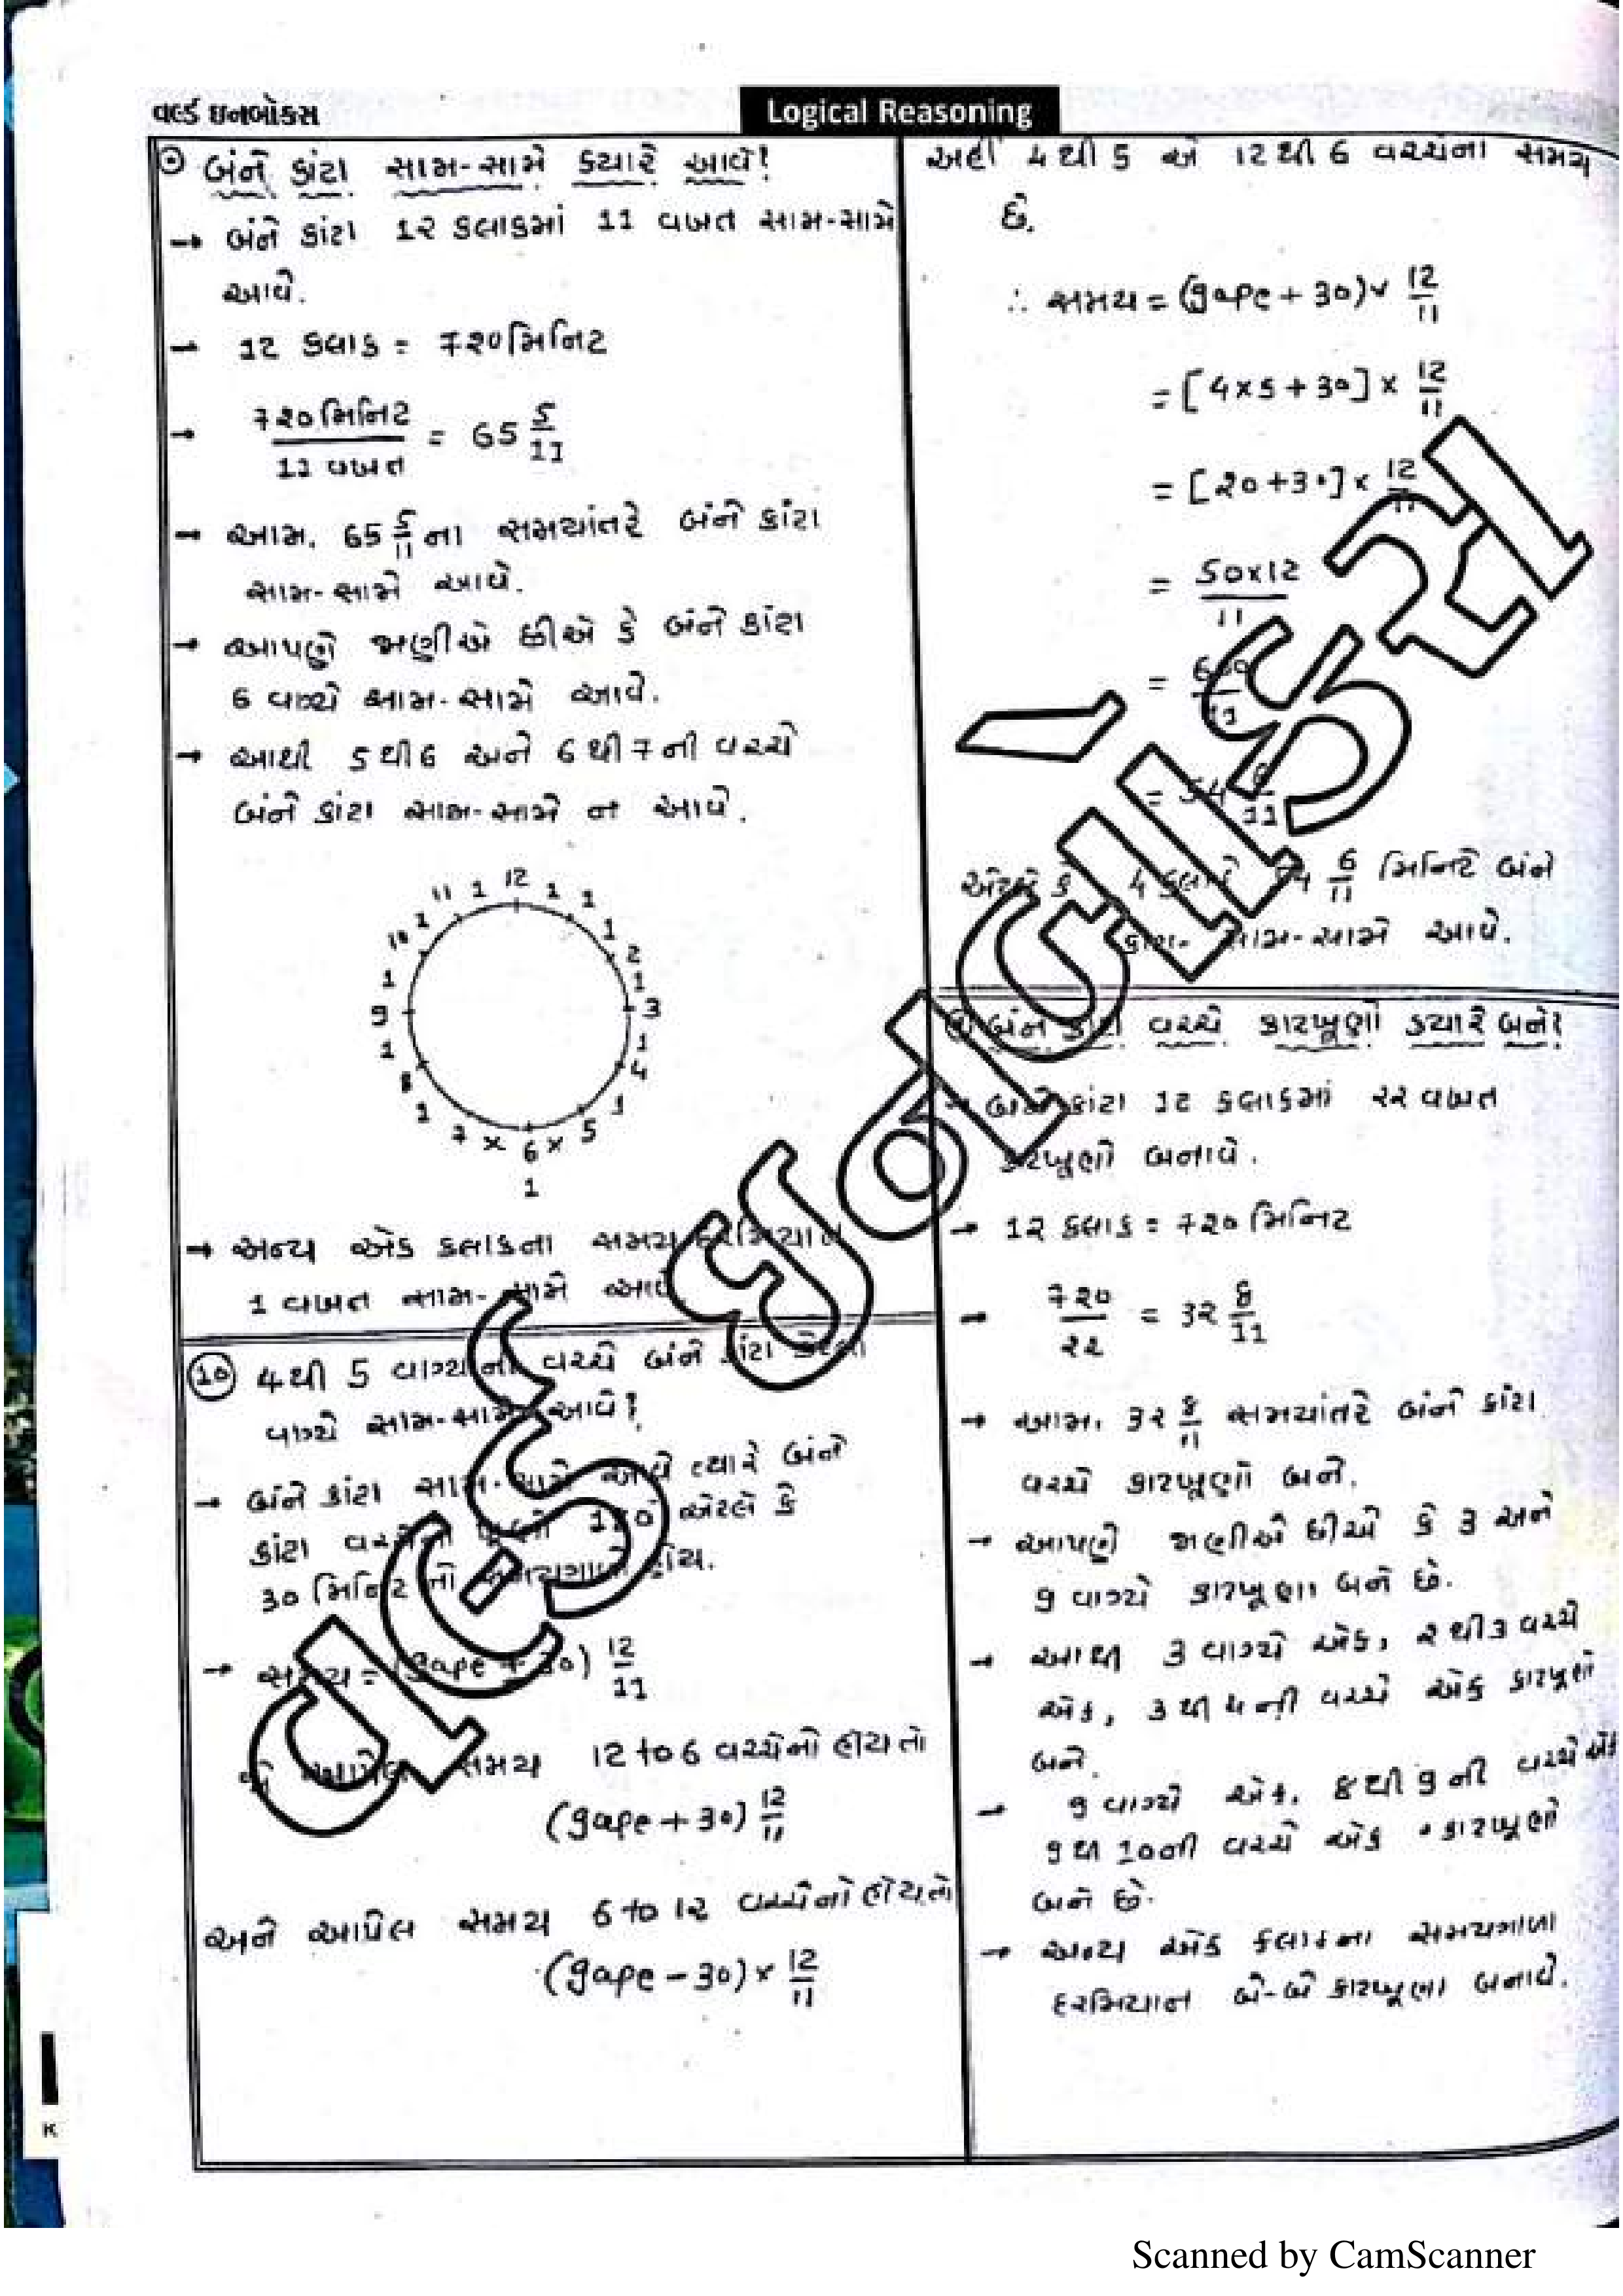 વર્લ્ડ ઇનબોકસ
Logical Reasoning
બંને કાંટા સામ-સામે ક્યારે આવે?
→ બંને કાંટા 12 કલાકમાં 11 વખત સામ-સામે
આવે.
→ 12 કલાક = 720 મિનિટ
→ 720 મિનિટ / 11 વખત = 65 5/11
→ આમ, 65 5/11 ના સમયાંતરે બંને કાંટા
સામ-સામે આવે.
→ આપણે જાણીએ છીએ કે બંને કાંટા
6 વાગ્યે સામ-સામે આવે.
→ આથી 5 થી 6 અને 6 થી 7 ની વચ્ચે
બંને કાંટા સામ-સામે ન આવે.
11 1 12 1 1
1 1
10 2
1 1
9 3
1 1
8 4
1 1
7 x 6 x 5
1
→ અન્ય એક કલાકના સમય દરમિયાન
1 વખત સામ-સામે આવે
(10) 4 થી 5 વાગ્યાની વચ્ચે બંને કાંટા
વાગ્યે સામ-સામે આવે?
→ બંને કાંટા સામ-સામે આવે ત્યારે બંને
કાંટા વચ્ચેનો ખૂણો 180 એટલે કે
30 મિનિટનો સમયગાળો હોય.
→ સમય = (gape + 30) 12/11
જો આપેલ સમય 12 to 6 વચ્ચેનો હોય તો
(gape + 30) 12/11
અને આપેલ સમય 6 to 12 વચ્ચેનો હોય તો
(gape - 30) × 12/11
અહીં 4 થી 5 એ 12 થી 6 વચ્ચેના સમય
છે.
∴ સમય = (gape + 30) × 12/11
= [4 × 5 + 30] × 12/11
= [20 + 30] × 12/11
= 50 × 12 / 11
= 600/11
= 54 6/11
એટલે કે 4 કલાકે 54 6/11 મિનિટે બંને
કાંટા સામ-સામે આવે.
બંને કાંટા વચ્ચે કાટખૂણો ક્યારે બને?
→ બંને કાંટા 12 કલાકમાં 22 વખત
કાટખૂણો બનાવે.
→ 12 કલાક = 720 મિનિટ
→ 720/22 = 32 8/11
→ આમ, 32 8/11 સમયાંતરે બંને કાંટા
વચ્ચે કાટખૂણો બને.
→ આપણે જાણીએ છીએ કે 3 અને
9 વાગ્યે કાટખૂણા બને છે.
→ આથી 3 વાગ્યે એક, 2 થી 3 વચ્ચે
એક, 3 થી 4 ની વચ્ચે એક કાટખૂણો
બને.
→ 9 વાગ્યે એક, 8 થી 9 ની વચ્ચે એક
9 થી 10 ની વચ્ચે એક કાટખૂણો
બને છે.
→ અન્ય એક કલાકના સમયગાળા
દરમિયાન બે-બે કાટખૂણા બનાવે.
K
Scanned by CamScanner